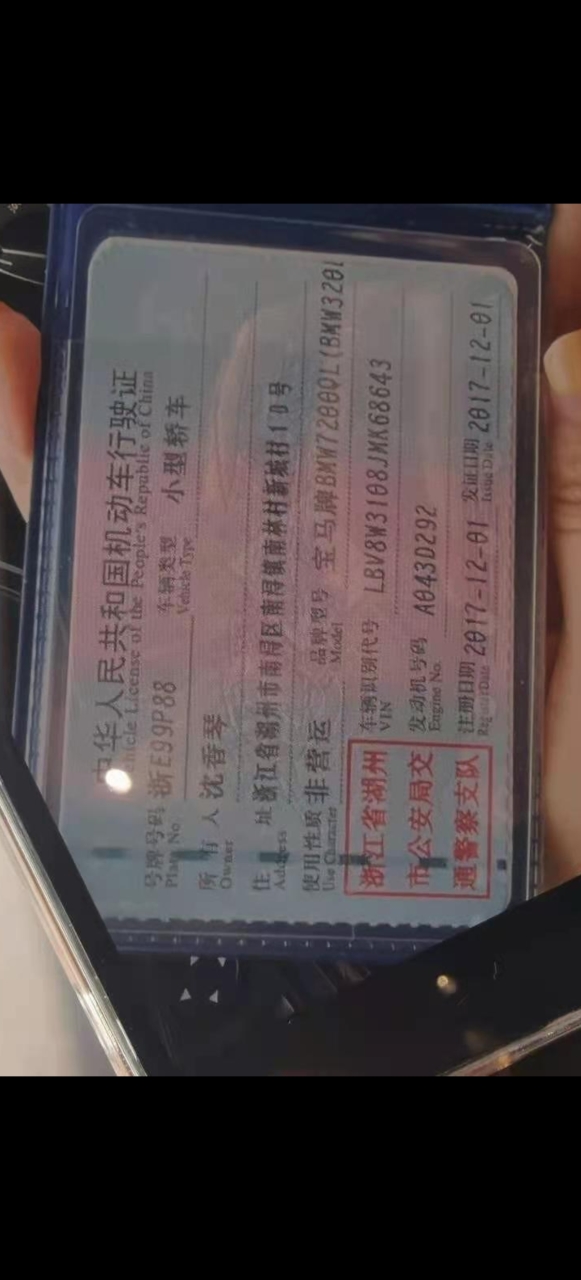 中华人民共和国机动车行驶证
Vehicle License of the People's Republic of China
号牌号码 浙E99P88 车辆类型 小型轿车
Plate No. Vehicle Type
所有人 沈香琴
Owner
住址 浙江省湖州市南浔区南浔镇南林村新城村10号
Address
使用性质 非营运 品牌型号 宝马牌BMW7200QL(BMW320L
Use Character Model
车辆识别代号 LBV8W3108JMK68643
VIN
发动机号码 A043D292
Engine No.
注册日期 2017-12-01 发证日期 2017-12-01
Register Date Issue Date
浙江省湖州
市公安局交
通警察支队